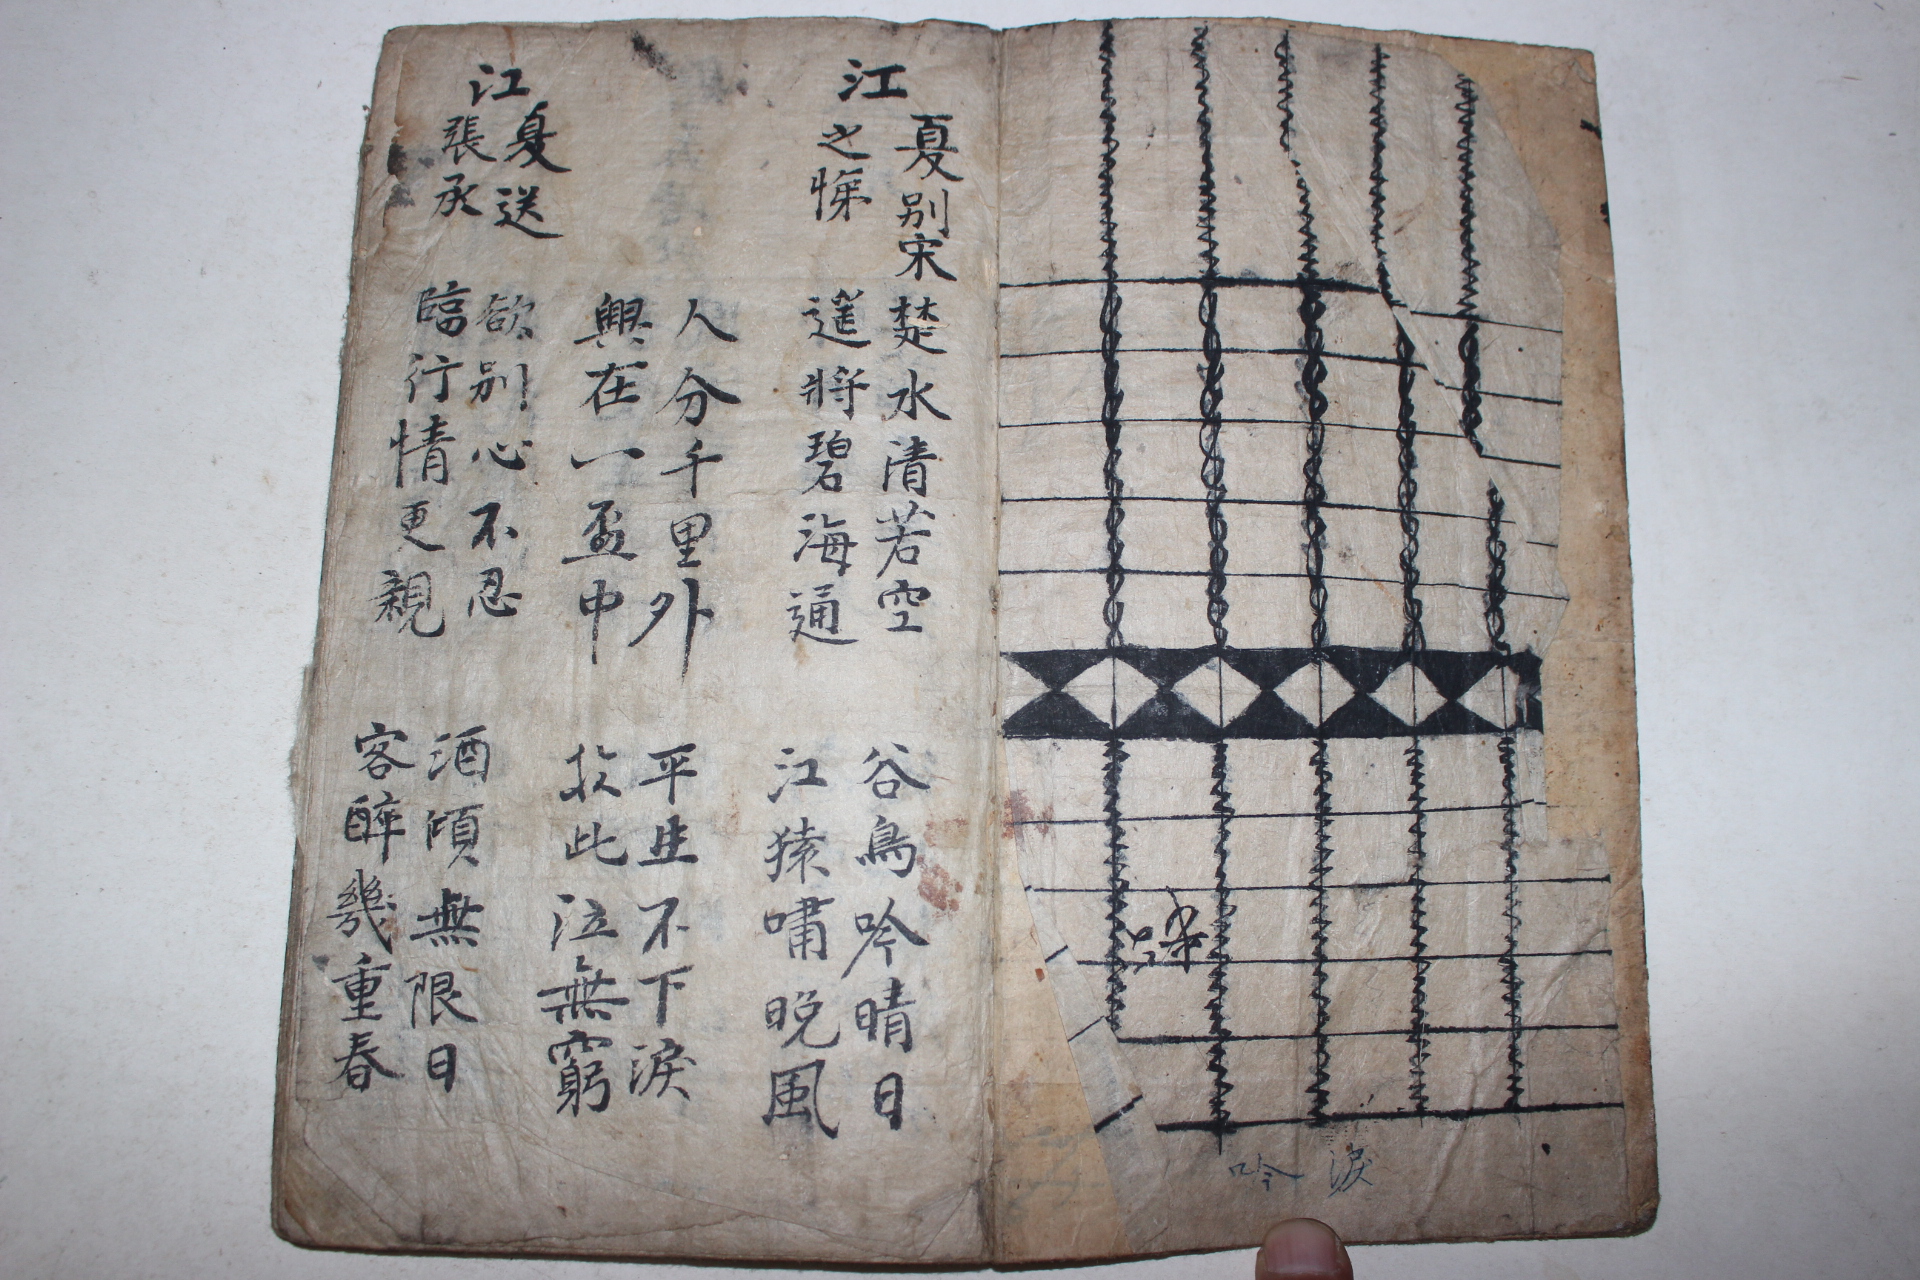 吟淚
江夏別宋之悌
楚水清若空
遙將碧海通
人分千里外
興在一盃中
谷鳥吟晴日
江猿嘯晚風
平生不下淚
於此泣無窮
江夏送張承
欲別心不忍
臨行情更親
酒傾無限日
客醉幾重春